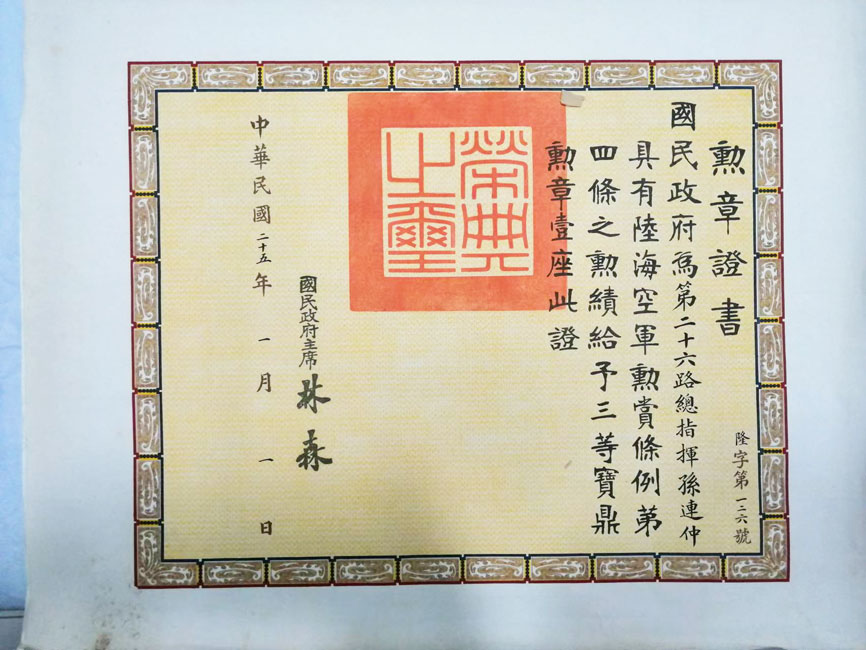 勲章證書
隆字第一二六號
國民政府爲第二十六路總指揮孫連仲
具有陸海空軍勲賞條例第
四條之勲績給予三等寶鼎
勲章壹座此證
榮典之璽
國民政府主席 林森
中華民國二十五年一月一日